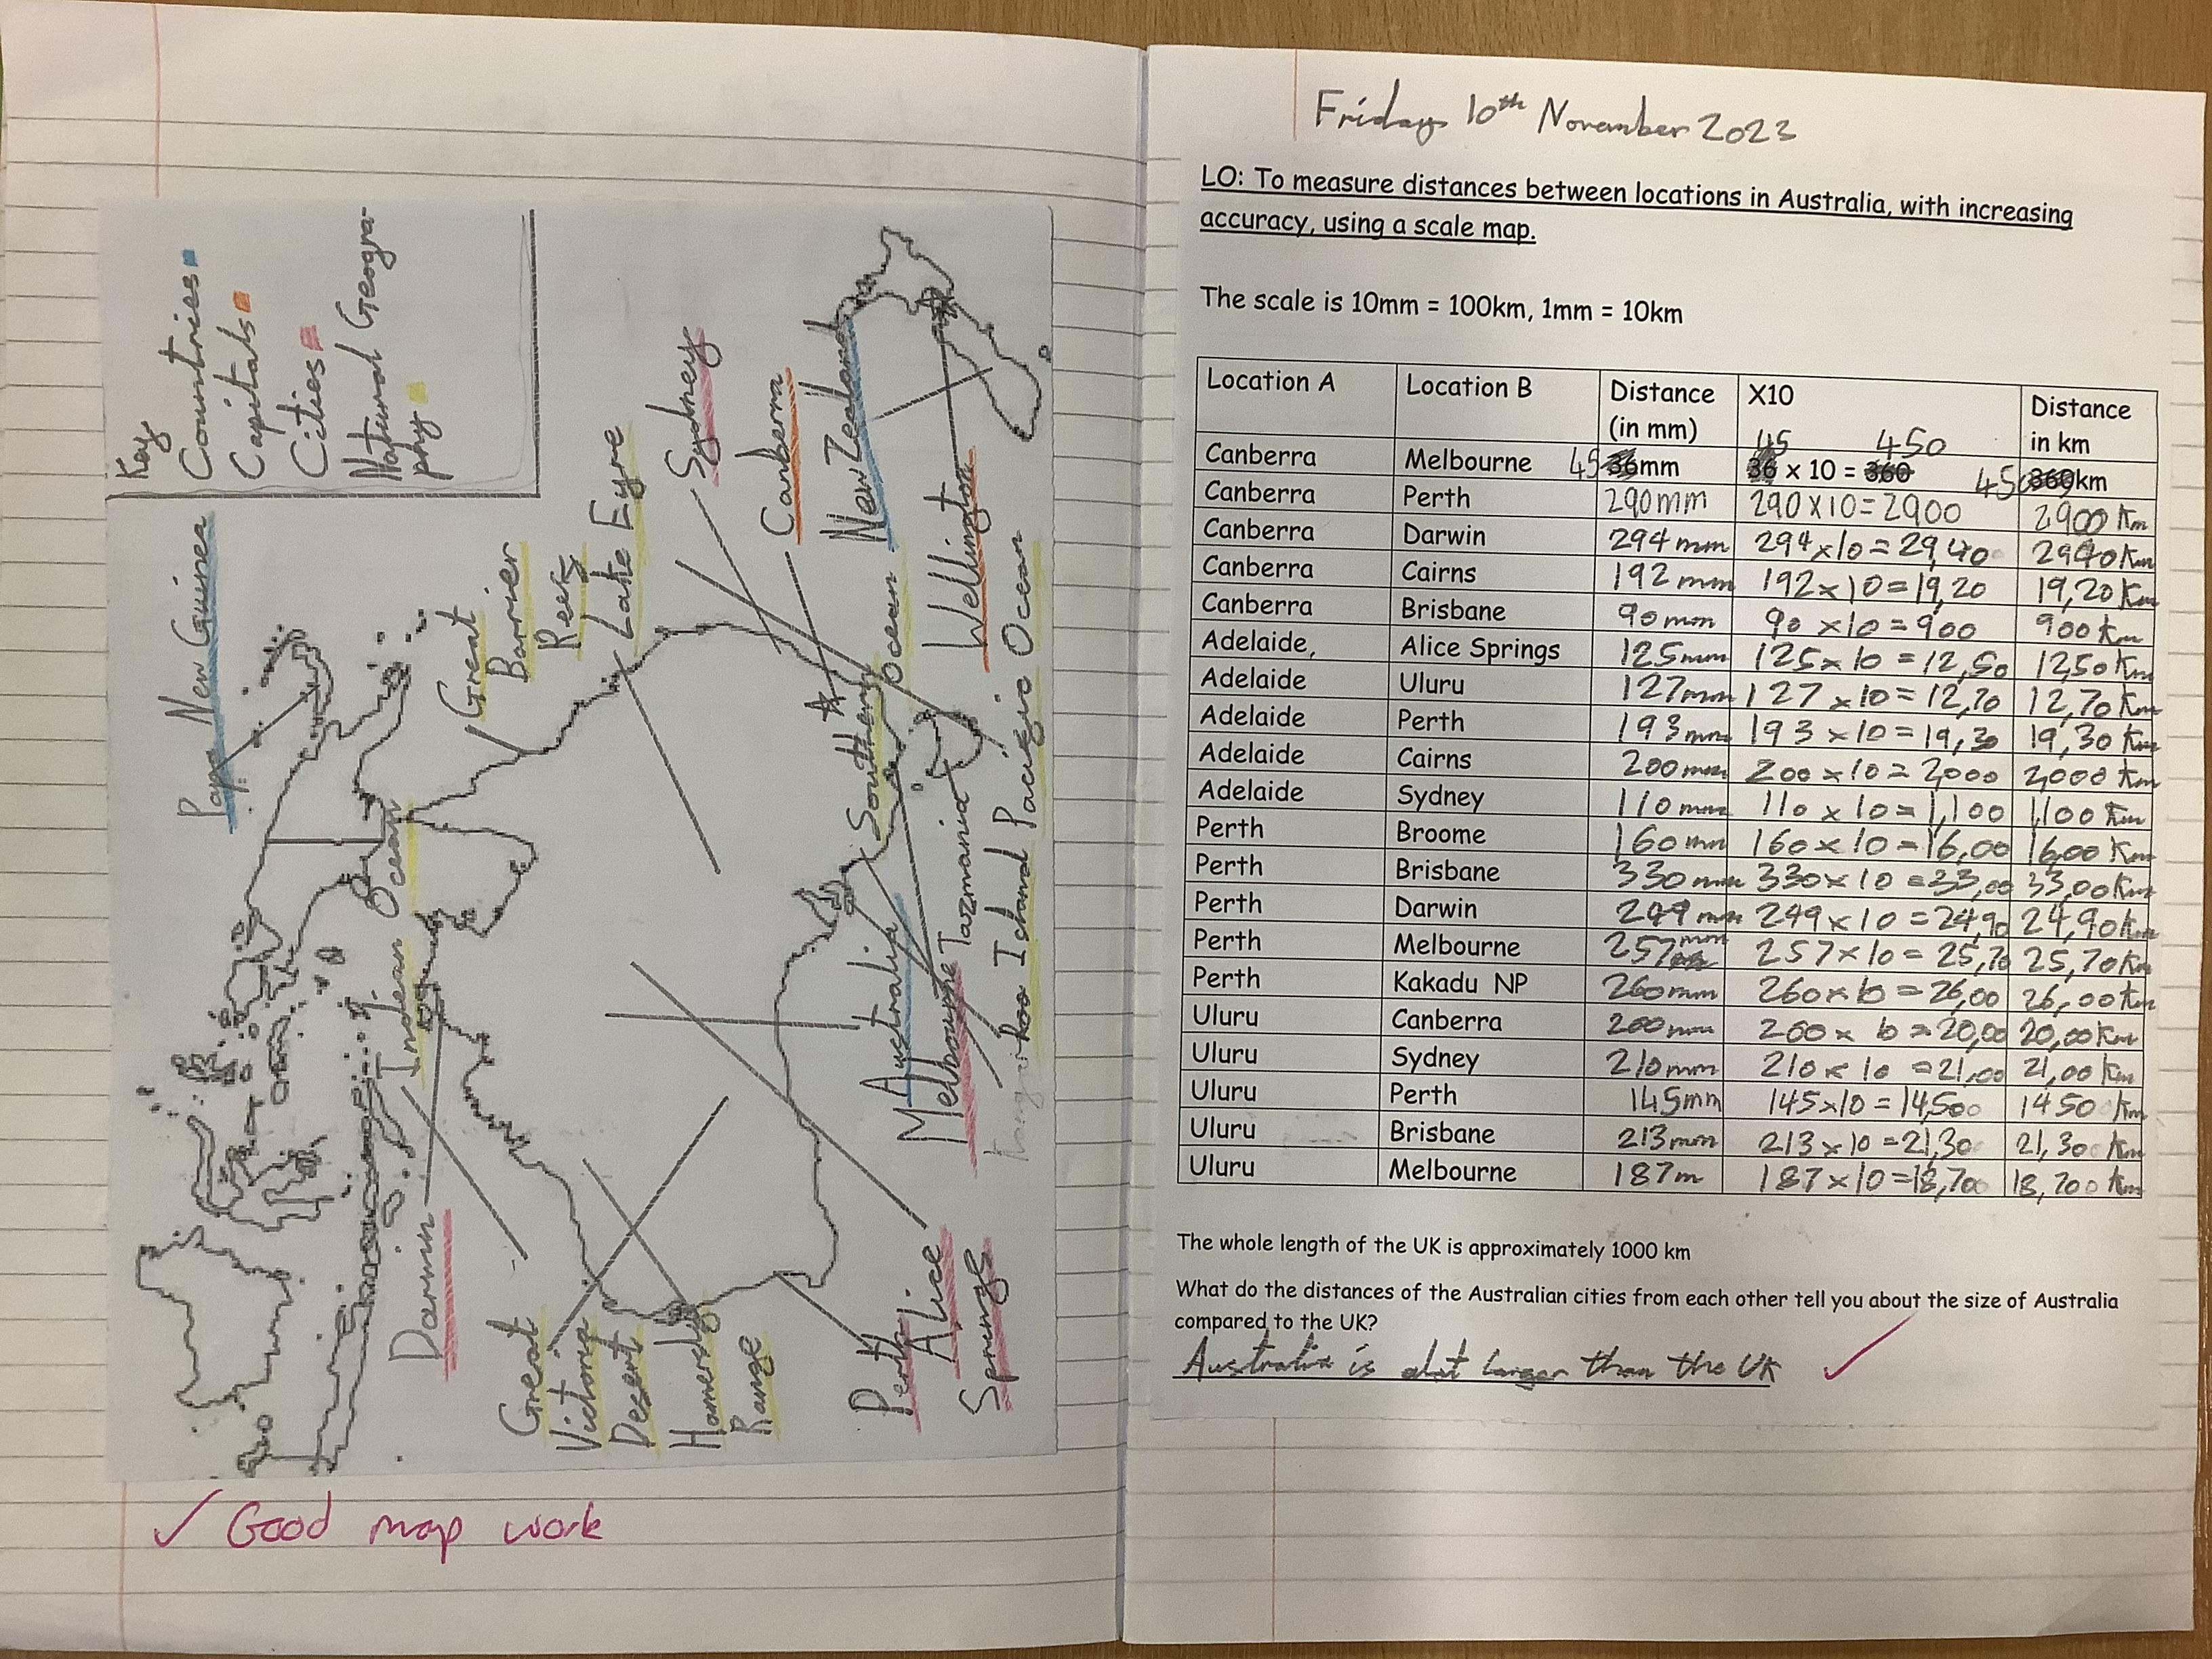 Key
Countries
Capitals
Cities
Natural Geogra-
phy
Papa New Guinea
Great
Barrier
Reef
Lake Eyre
Sydney
Canberra
New Zealand
Wellington
Indean Ocean
Southern Ocean
Australia
Melbourne
Tazmania
Island Pacific Ocean
Darwin
Great
Victoria
Desert
Hamersley
Range
Perth
Alice
Springs
✓ Good map work
Friday 10th November 2023
LO: To measure distances between locations in Australia, with increasing
accuracy, using a scale map.
The scale is 10mm = 100km, 1mm = 10km
Location A Location B Distance (in mm) X10 Distance in km
45 450
Canberra Melbourne 45 36mm 36 x 10 = 360 450 360km
Canberra Perth 290mm 290x10=2900 2900 Km
Canberra Darwin 294mm 294x10=29,40 2940Km
Canberra Cairns 192mm 192x10=19,20 19,20Km
Canberra Brisbane 90mm 90 x10=900 900Km
Adelaide, Alice Springs 125mm 125x10=12,50 1250Km
Adelaide Uluru 127mm 127 x10=12,70 12,70Km
Adelaide Perth 193mm 193 x10=19,30 19,30 Km
Adelaide Cairns 200mm 200 x10=2,000 2,000 Km
Adelaide Sydney 110mm 110 x 10=1,100 1,100 Km
Perth Broome 160mm 160x10=16,00 1600 Km
Perth Brisbane 330mm 330x10=33,00 33,00Km
Perth Darwin 249mm 249x10=24,90 24,90Km
Perth Melbourne 257mm 257x10=25,70 25,70Km
Perth Kakadu NP 260mm 260x10=26,00 26,00Km
Uluru Canberra 200mm 200x10=20,00 20,00Km
Uluru Sydney 210mm 210x10=21,00 21,00Km
Uluru Perth 145mm 145x10=14,500 1450 Km
Uluru Brisbane 213mm 213x10=21,30 21,30 Km
Uluru Melbourne 187m 187x10=18,700 18,700 Km
The whole length of the UK is approximately 1000 km
What do the distances of the Australian cities from each other tell you about the size of Australia
compared to the UK?
Australia is alot larger than the UK ✓